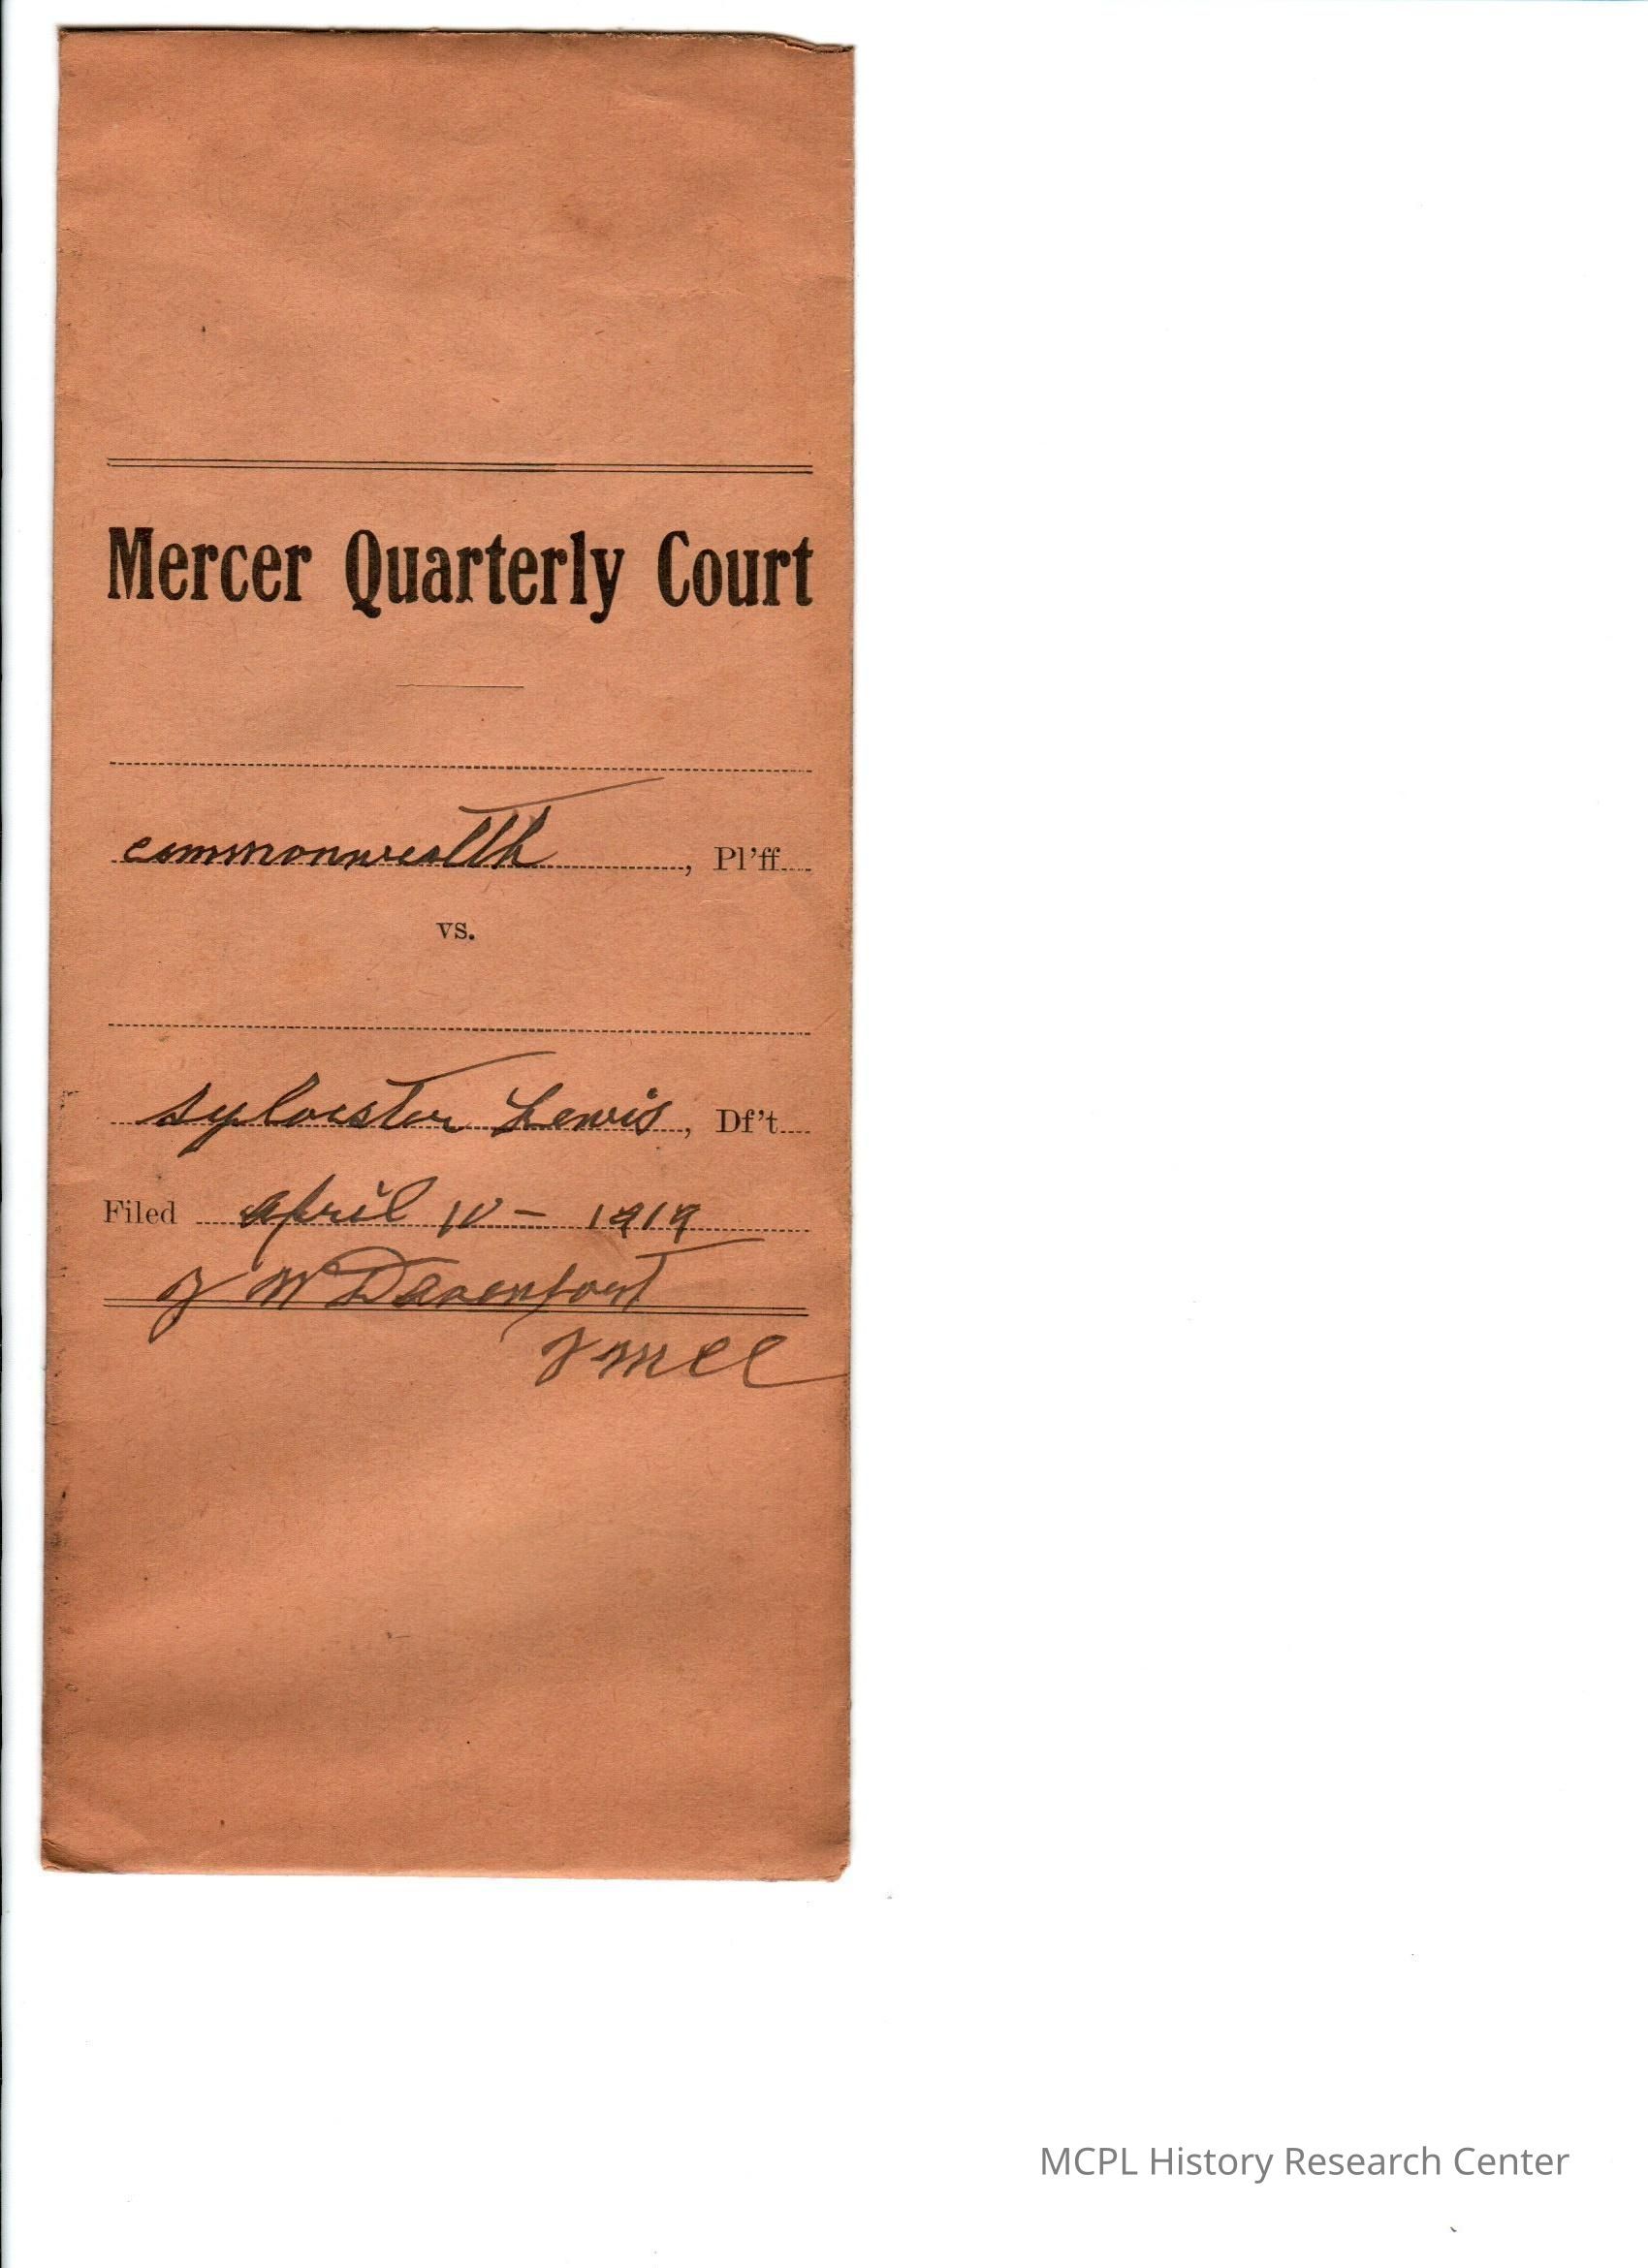 Mercer Quarterly Court
commonwealth, Pl'ff
vs.
Sylvester Lewis, Df't
Filed april 10 - 1919
W Davenport
MCPL History Research Center